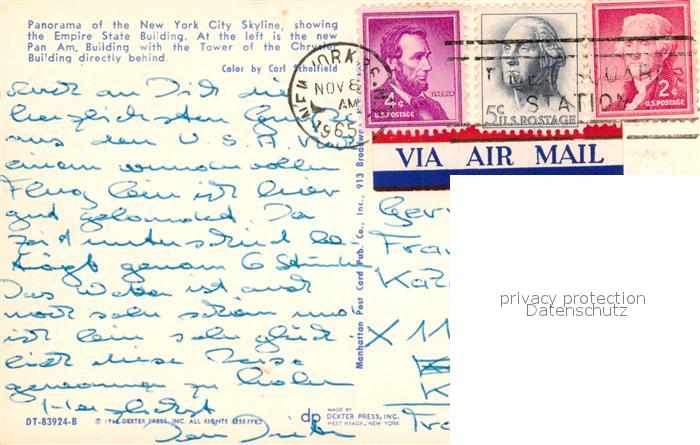 Panorama of the New York City Skyline, showing
the Empire State Building. At the left is the new
Pan Am. Building with the Tower of the Chrysler
Building directly behind.
Color by Carl Scholfield
NEW YORK
NOV 6
AM
1965
LINCOLN
4¢
U.S. POSTAGE
5¢
U.S. POSTAGE
2¢
U.S. POSTAGE
TIMES SQUARE
STATION
VIA AIR MAIL
auch an Dich die
herzlichsten
aus den U.S.A. Nach
einem wundervollen
Flug bin ich hier
gut gelandet. Der
Zeitunterschied be-
trägt genau 6 Stunden
Das Wetter ist auch
noch sehr schön und
ich bin sehr glück-
lich diese Reise
genommen zu haben
Herzlichst
Dein
Manhattan Post Card Pub. Co., Inc., 913 Broadway
Frau
X 11
privacy protection
Datenschutz
DT-83924-B
DEXTER PRESS, INC. ALL RIGHTS RESERVED
dp
MADE BY
DEXTER PRESS, INC.
WEST NYACK, NEW YORK